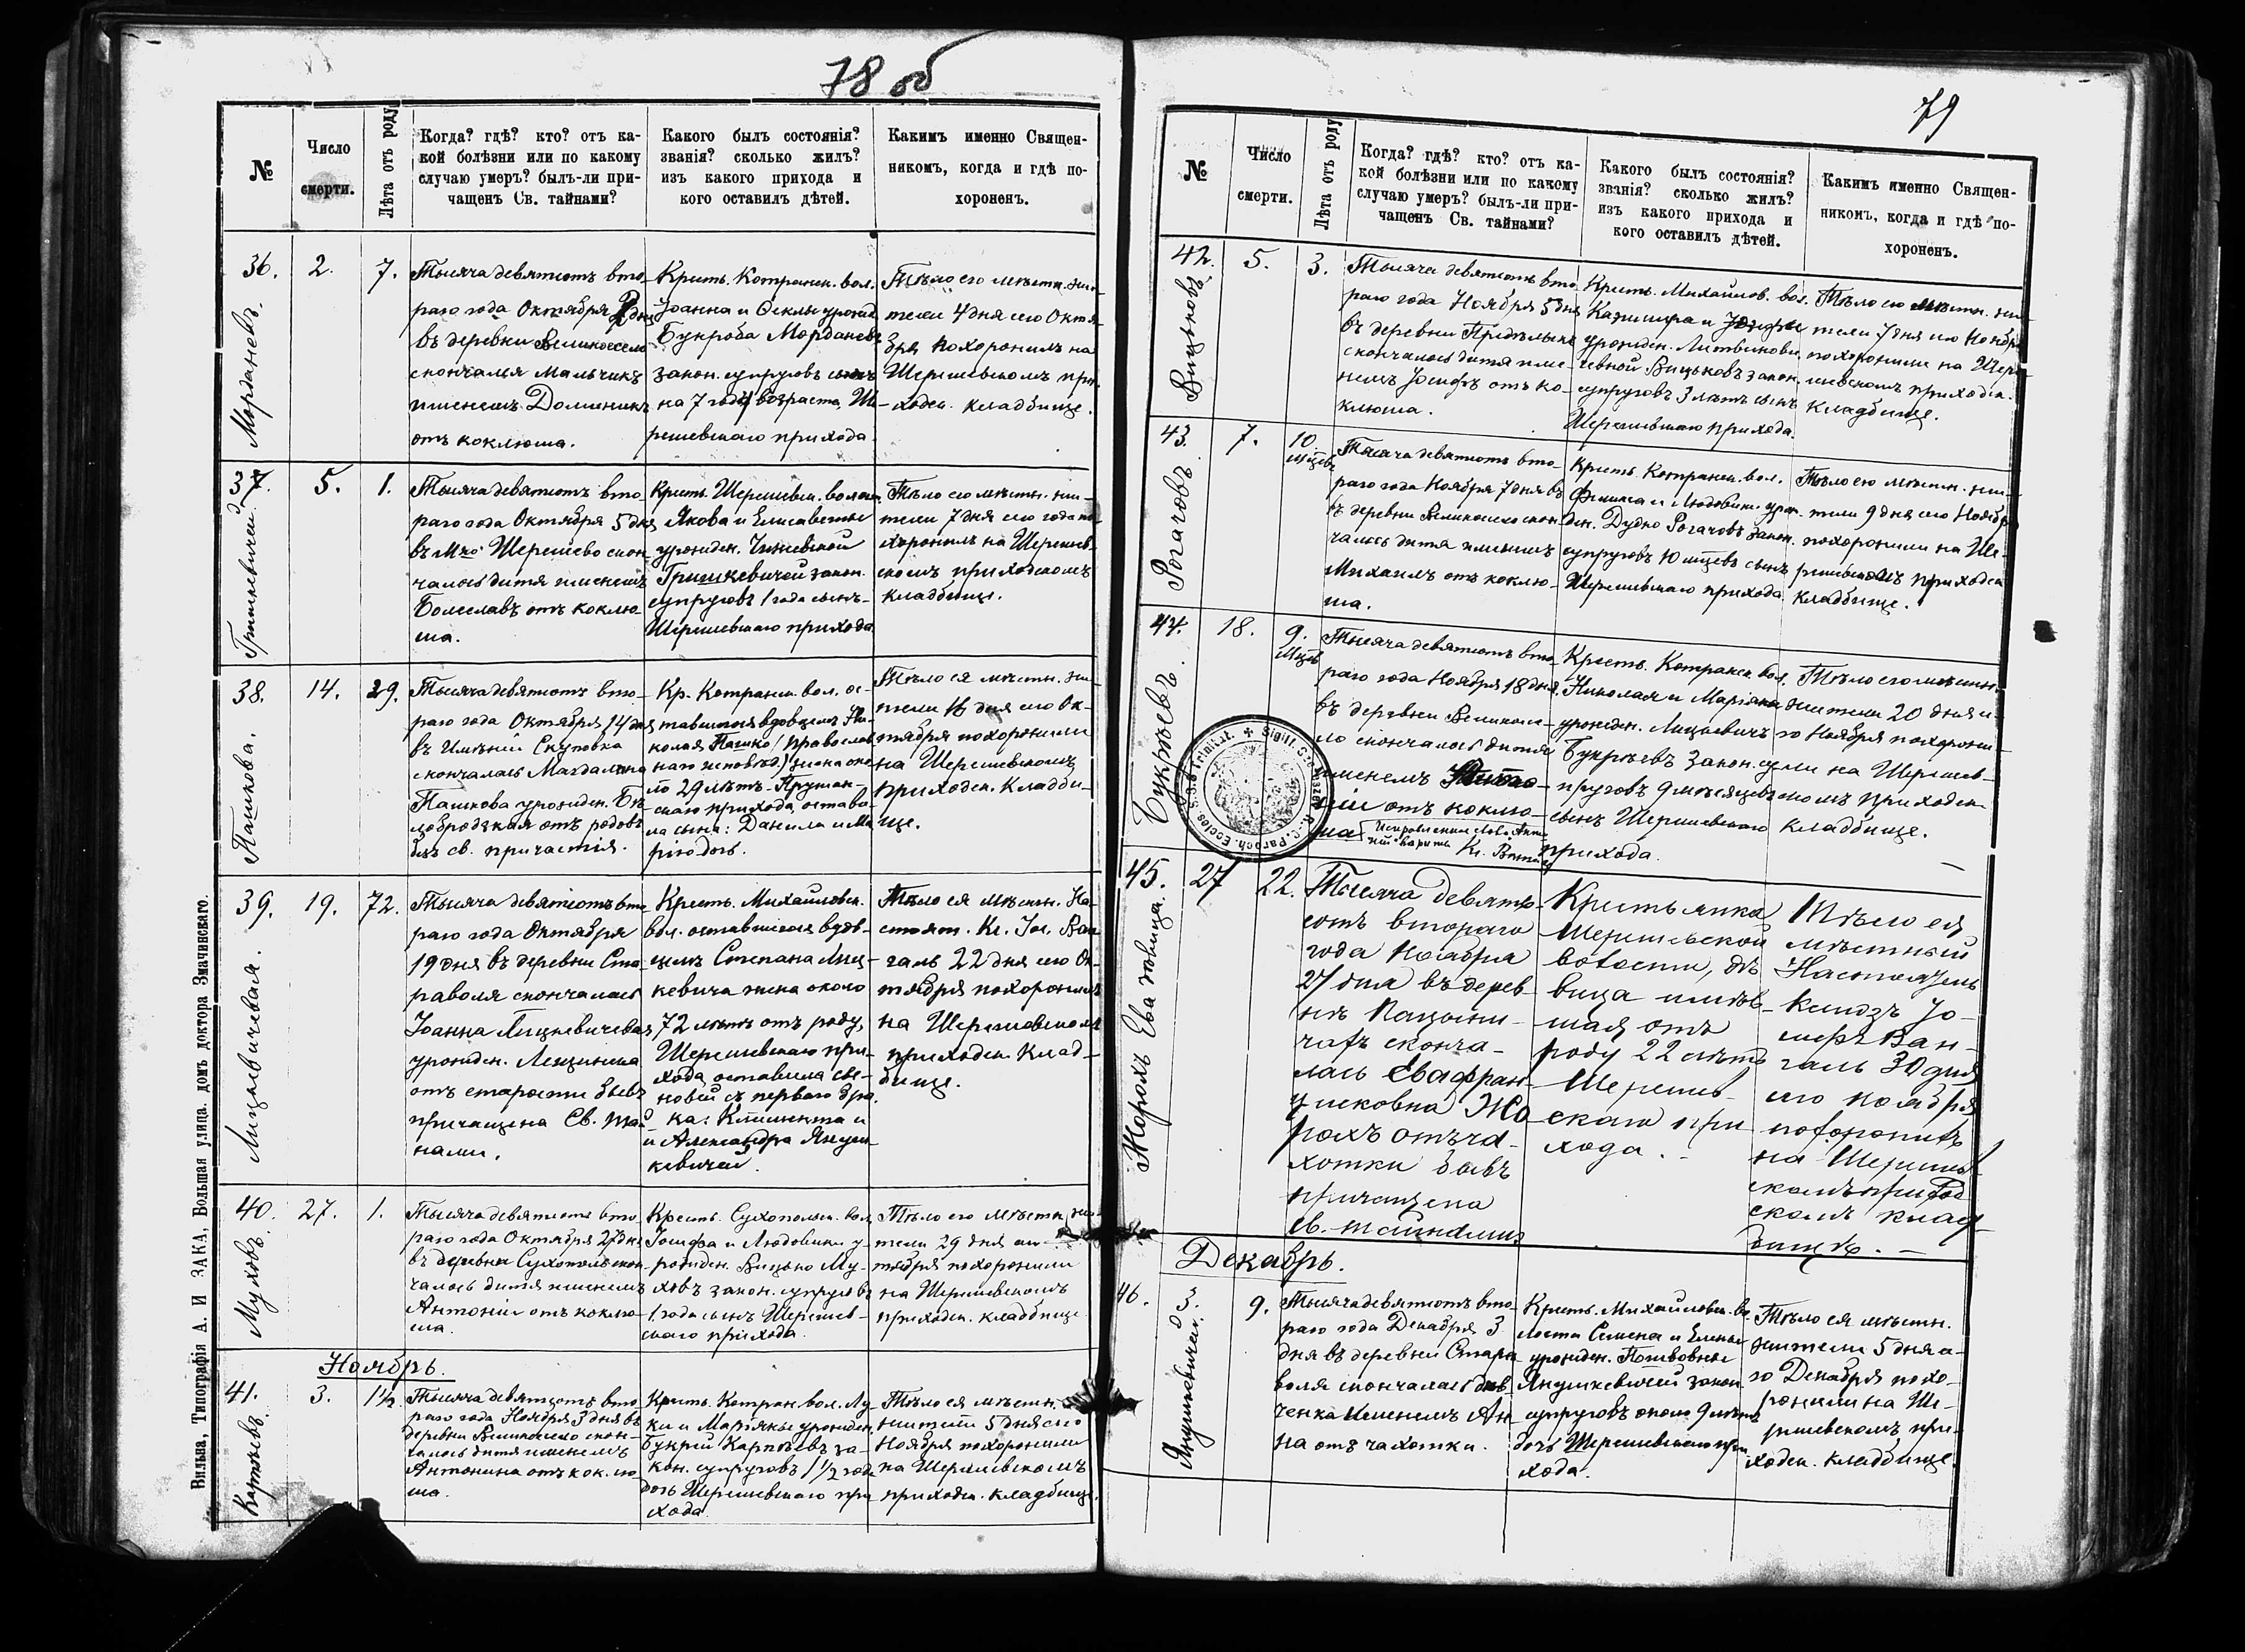 78 об
№
Число
смерти.
Лѣта отъ роду
Когда? гдѣ? кто? отъ ка-
кой болѣзни или по какому
случаю умеръ? былъ-ли при-
чащенъ Св. тайнами?
Какого былъ состоянія?
званія? сколько жилъ?
изъ какого прихода и
кого оставилъ дѣтей.
Какимъ именно Священ-
никомъ, когда и гдѣ по-
хороненъ.
36.
2.
7.
Тысяча девятьсотъ вто-
раго года Октября 2 дня
въ деревни Великосело
скончался мальчикъ
именемъ Доминикъ
отъ коклюша.
Крестъ. Котранск. вол.
Іоанна и Феклы урожд.
Букроба Мордачевъ
закон. супруговъ сынъ
на 7 году возраста, Ше-
решевскаго прихода
Тѣло его мѣстн. жи-
тели 4 дня сего Октя-
бря похоронилъ на
Шерешевскомъ при-
ходск. кладбище.
37.
5.
1.
Тысяча девятьсотъ вто-
раго года Октября 5 дня
въ М-чко Шерешево скон-
чалось дитя именемъ
Болеславъ отъ коклю-
ша.
Крест. Шерешевск. волости
Якова и Елисаветы
урожден.
Гришкевичей закон.
супруговъ 1 года сынъ-
Шерешевскаго прихода
Тѣло его мѣстн. жи-
тели 7 дня сего года по-
хоронилъ на Шерешев-
скомъ приходскомъ
кладбище.
Гришкевичей
38.
14.
29.
Пашкова.
Тысяча девятьсотъ вто-
раго года Октября 14 дня
въ Имѣніи Скуповка
скончалась Магдалина
Пашкова урожден. Бѣ-
лобродзкая отъ родовъ
безъ св. причастія.
Кр. Котранск. вол. ос-
тавшагося вдовцемъ Ни-
колая Пашко (православ-
наго исповѣд.) жена око-
ло 29 лѣтъ-Пружан-
скаго прихода, остави-
ла сына: Данила и Ма-
рію дочь.
Тѣло ея мѣстн. жи-
тели 16 дня сего Ок-
тября похоронили
на Шерешевскомъ
приходск. кладби-
ще.
39.
19.
72.
Лицкевичевая.
Тысяча девятьсотъ вто-
раго года Октября
19 дня въ деревни Ста-
раволя скончалась
Іоанна Лицкевичевая,
урожден.
отъ старости бывъ
причащена Св. тай-
нами.
Крестъ. Михайловск.
вол. оставшагося вдов-
цемъ Степана Лиц-
кевича жена около
72 лѣтъ отъ роду,
Шерешевскаго при-
хода оставила сы-
новей съ перваго бра-
ка: Климента и
и Александра Януш-
кевичей.
Тѣло ея мѣстн. На-
стоят. Кс. Іос. Ван-
галь 22 дня сего Ок-
тября похоронилъ
на Шерешевскомъ
приходск. Клад-
бище.
40.
27.
1.
Муховъ.
Тысяча девятьсотъ вто-
раго года Октября 27 дня
въ деревни Сухополь скон-
чалось дитя именемъ
Антоній отъ коклю-
ша.
Крестъ. Сухопольск. вол.
Іосифа и Людовики у-
рожден. Вицько Му-
ховъ закон. супруговъ
1 года сынъ Шерешев-
скаго прихода.
Тѣло его мѣстн. жи-
тели 29 дня ок-
тября похоронили
на Шерешевскомъ
приходск. кладбище
Ноябрь.
41.
3.
1½
Карпѣевъ.
Тысяча девятьсотъ вто-
раго года Ноября 3 дня въ
деревни Великосело скон-
чалось дитя именемъ
Антонина отъ коклю-
ша.
Крестъ. Котран. вол. Лу-
ки и Маріянны урожден.
Букрѣй Карпѣевъ за-
кон. супруговъ 1½ года
дочь Шерешевскаго при-
хода.
Тѣло ея мѣстн.
жители 5 дня сего
Ноября похоронили
на Шерешевскомъ
приходск. кладбище.
Вильна, Типографія А. И ЗАКА, Большая улица. домъ доктора Змачинскаго.
79
№
Число
смерти.
Лѣта отъ роду
Когда? гдѣ? кто? отъ ка-
кой болѣзни или по какому
случаю умеръ? былъ-ли при-
чащенъ Св. тайнами?
Какого былъ состоянія?
званія? сколько жилъ?
изъ какого прихода и
кого оставилъ дѣтей.
Какимъ именно Священ-
никомъ, когда и гдѣ по-
хороненъ.
42.
5.
3.
Вицьковъ
Тысяча девятьсотъ вто-
раго года Ноября 5 дня
въ деревни
скончалось дитя име-
немъ Іосифъ отъ ко-
клюша.
Крестъ. Михайлов. вол.
Казимира и
урожден. Литвинови-
чевной Вицьковъ закон.
супруговъ 3 лѣтъ сынъ
Шерешевскаго прихода.
Тѣло его мѣстн. жи-
тели 7 дня сего Ноября
похоронили на Шере-
шевскомъ приходск.
кладбище.
43.
7.
10
мѣсяцевъ
Рогачовъ.
Тысяча девятьсотъ вто-
раго года Ноября 7 дня въ
въ деревни Великосело скон-
чалось дитя именемъ
Михаилъ отъ коклю-
ша.
Крестъ. Котранск. вол.
Филиппа и Людовики урож-
ден. Дудко Рогачовъ закон.
супруговъ 10 мѣсяцевъ сынъ
Шерешевскаго прихода
Тѣло его мѣстн. жи-
тели 9 дня сего Ноября
похоронили на Ше-
решевскомъ приходск.
кладбище.
44.
18.
9.
мѣсяцевъ
Букрѣевъ.
Тысяча девятьсотъ вто-
раго года Ноября 18 дня
въ деревни Великосе-
ло скончалось дитя
именемъ
ній отъ коклю-
ша
Крестъ. Котранск. вол.
Николая и Маріянны
урожден. Лицкевичъ
Букрѣевъ закон. су-
пруговъ 9 мѣсяцевъ
сынъ Шерешевскаго
прихода.
Тѣло его мѣстн.
жители 20 дня се-
го Ноября похорони-
ли на Шерешев-
скомъ приходск.
кладбище.
45.
27
22.
Жорохъ Ева дѣвица.
Тысяча девять-
сотъ втораго
года Ноября
27 дня въ дерев-
нѣ
чахъ сконча-
лась Ева Фран-
цисковна Жо-
рохъ отъ ча-
хотки бывъ
причащена
св. тайнами
Крестьянка
Шерешевской
волости, дѣ-
вица имѣв-
шая отъ
роду 22 лѣтъ
Шерешев-
скаго при-
хода.-
Тѣло ея
мѣстный
Настоятель
ксендзъ Іо-
сифъ Ван-
галь 30 дня
сего ноября
похоронилъ
на Шерешев-
скомъ приход-
скомъ клад-
бищѣ.-
Декабрь.
46.
3.
9.
Янушкевичей.
Тысяча девятьсотъ вто-
раго года Декабря 3
дня въ деревни Стара-
воля скончалась дѣв-
ченка именемъ Ан-
на отъ чахотки.
Крестъ. Михайловск. во-
лости Семена и Елены
урожден.
Янушкевичей закон.
супруговъ около 9 лѣтъ
дочь Шерешевскаго при-
хода.
Тѣло ея мѣстн.
жители 5 дня се-
го Декабря похо-
ронили на Ше-
решевскомъ при-
ходск. кладбище.